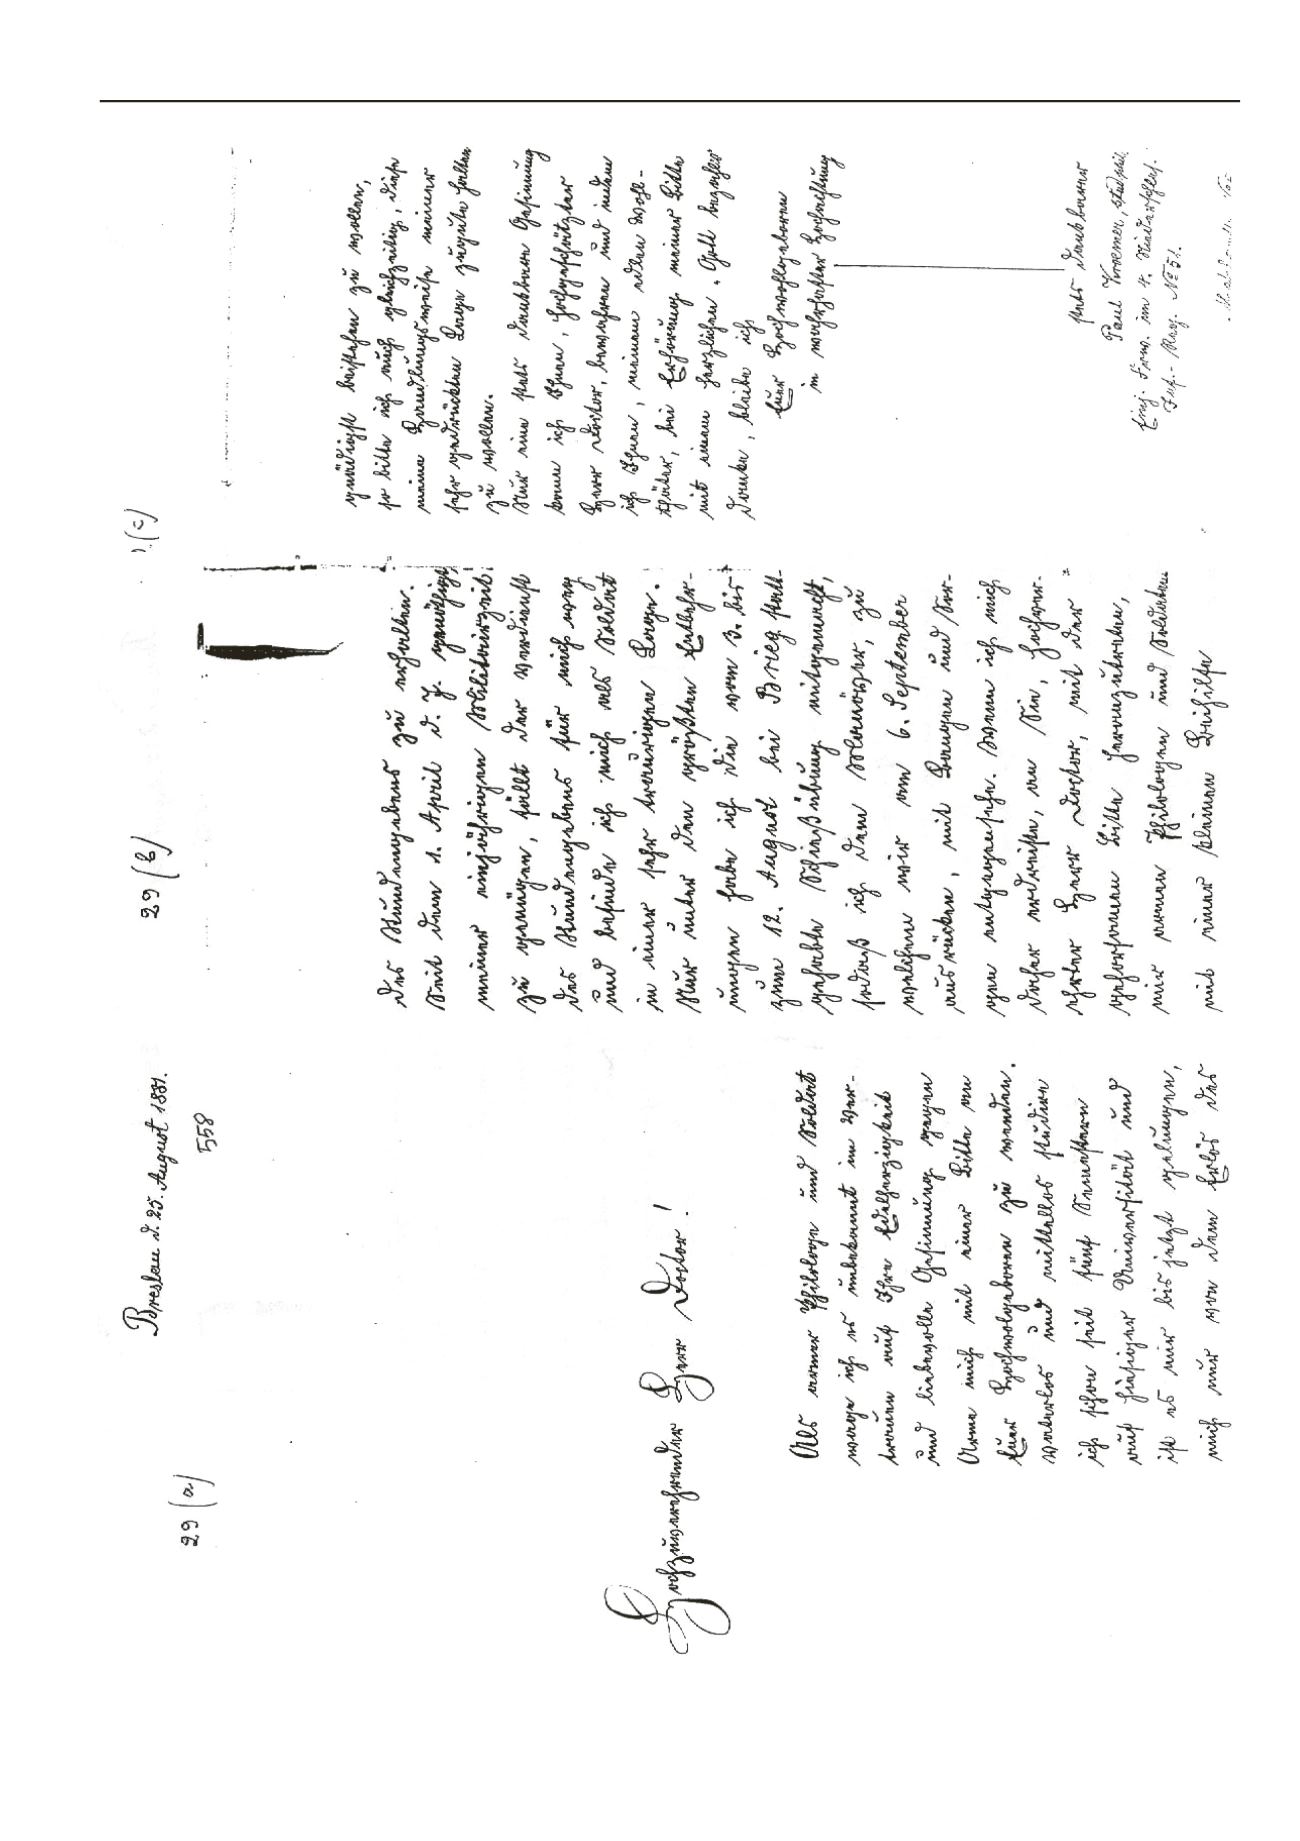 29 (a)
Breslau d. 25. August 1881.
558
Hochzuverehrender Herr Doctor!
Als armer Philologe und Soldat
wage ich es unbekannt im Ver-
trauen auf Ihre Edelherzigkeit
und liebevolle Gesinnung gegen
Arme mich mit einer Bitte an
Euer Hochwolgeboren zu wenden.
Vaterlos und mittellos studire
ich schon seit fünf Semestern
auf hiesiger Universität und
ist es mir bis jetzt gelungen,
mich nur von dem Erlös des
29 (b)
des Stundengebens zu erhalten.
Seit dem 1. April d. J. genöthigt,
meiner einjährigen Militairzeit
zu genügen, fällt der Verdienst
des Stundengebens für mich weg
und befinde ich mich als Soldat
in einer sehr traurigen Lage.
Nur unter den größten Entbehr-
ungen habe ich die vom 3. bis
zum 12. August bei Brieg statt-
gehabte Schießübung mitgemacht,
sodaß ich dem Manöver, zu
welchem wir am 6. September
ausrücken, mit Bangen und Sor-
gen entgegensehe. Wenn ich mich
daher erdreiste, an Sie, hochver-
ehrter Herr Doctor, mit der
gehorsamen Bitte heranzutreten,
mir armen Philologen und Soldaten
mit einer kleinen Beihilfe
(c)
gnädigst beistehen zu wollen,
so bitte ich auch gleichzeitig, diese
meine Handlungsweise meiner
sehr gedrückten Lage zugute halten
zu wollen.
Nur eine stets dankbare Gesinnung
kann ich Ihnen, hochgeschätzter
Herr Doctor, bewahren und indem
ich Ihnen, meinem edlen Wohl-
thäter, bei Erhörung meiner Bitte
mit einem herzlichen "Gott bezahls"
danke, bleibe ich
Euer Hochwohlgeboren
in wahrhafter Hochachtung
stets dankbarer
Paul Kroemer, stud. phil.
Einj. Freiw. im 4. Niederschles.
Inf.-Reg. No 51.